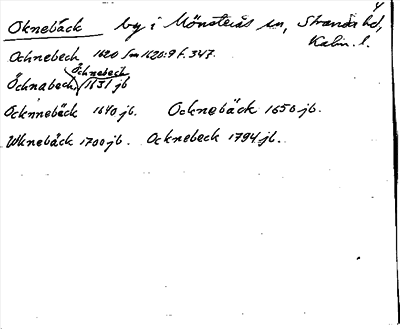 Oknebäck by i Mönsterås sn, Stranda hd,
Kalm. l.
Ochnebech 1620 Sm 1620:9 f. 347.
Öchnebech
Öchnabech 1631 jb
Öcknnebäck 1640 jb. Ocknebäck 1650 jb.
Wknebäck 1700 jb. Ocknebeck 1794 jb.